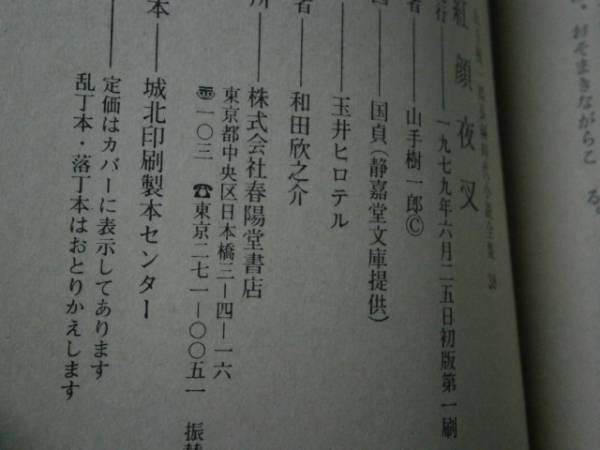 、おそまきながらこ
る。
長編時代小説全集 38
紅顔夜叉
一九七九年六月二五日初版第一刷
者——山手樹一郎©
国貞(静嘉堂文庫提供)
玉井ヒロテル
者——和田欣之介
株式会社春陽堂書店
東京都中央区日本橋三—四—一六
〠一〇三 ☎東京二七一—〇〇五一 振替
本——城北印刷製本センター
定価はカバーに表示してあります
乱丁本・落丁本はおとりかえします